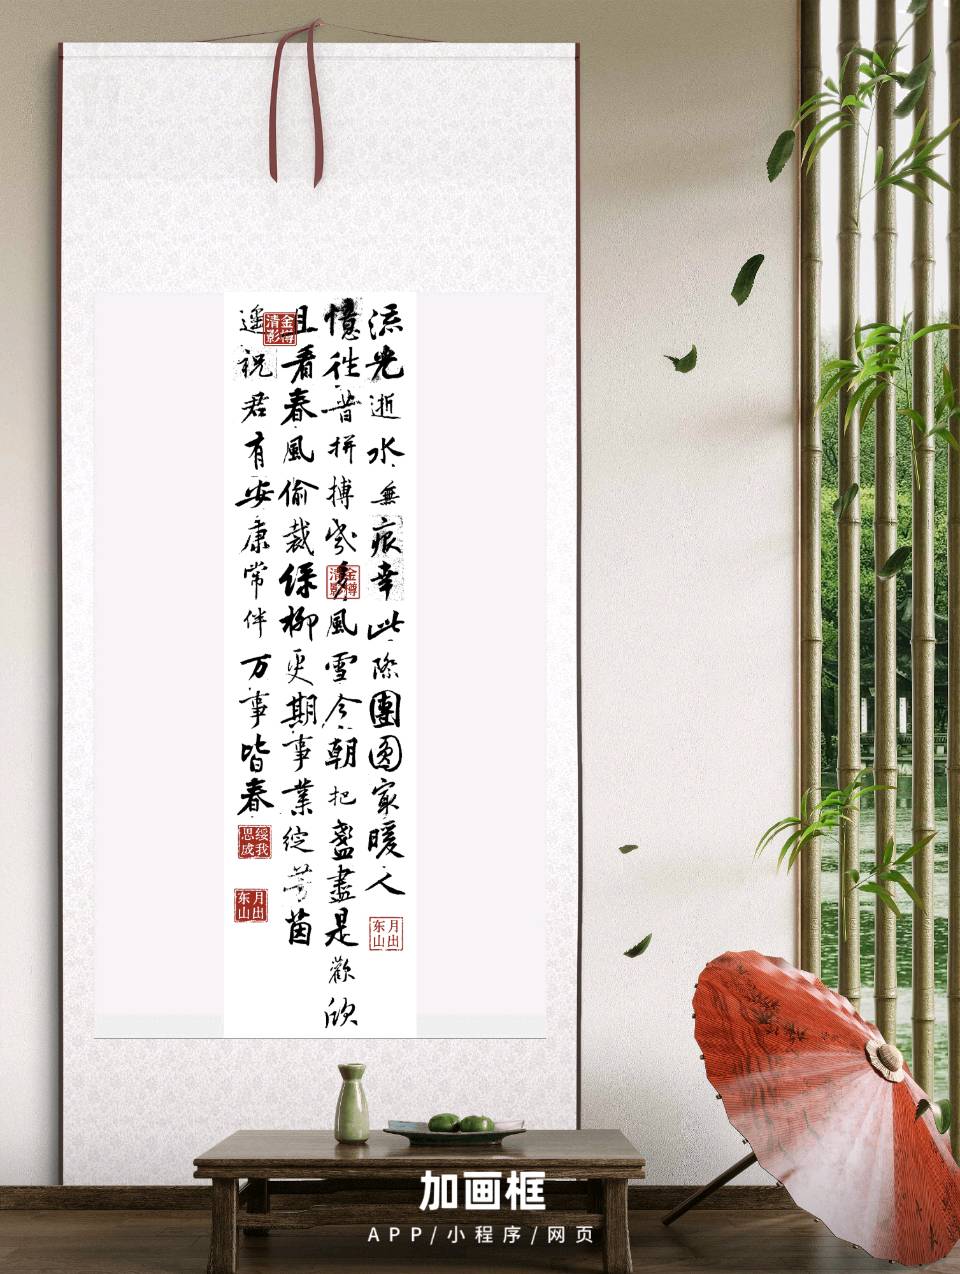 流光逝水無痕幸此際團圓家暖人
月出东山
憶往昔拼搏幾多風雪今朝把盞盡是歡欣
金樽清影
且看春風偷裁綠柳更期事業綻芳茵
金樽清影
遥祝君有安康常伴万事皆春
绥我思成
月出东山
加画框
APP/小程序/网页